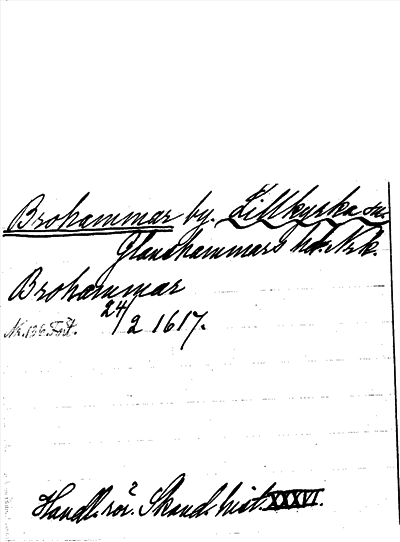 Brohammar by. Lillkyrka sn.
Glanshammars hd. Nrk.
Brohammar
24/2 1617.
Handl. rör. Skand. hist. XXXVI.